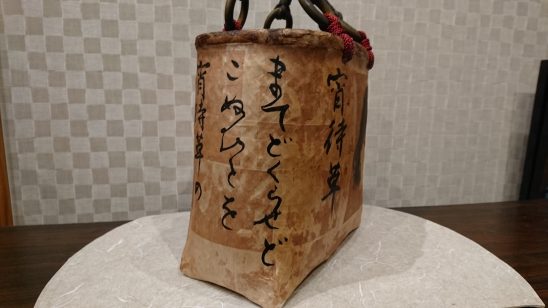 宵待草
まてどくらせど
こぬひとを
宵待草の